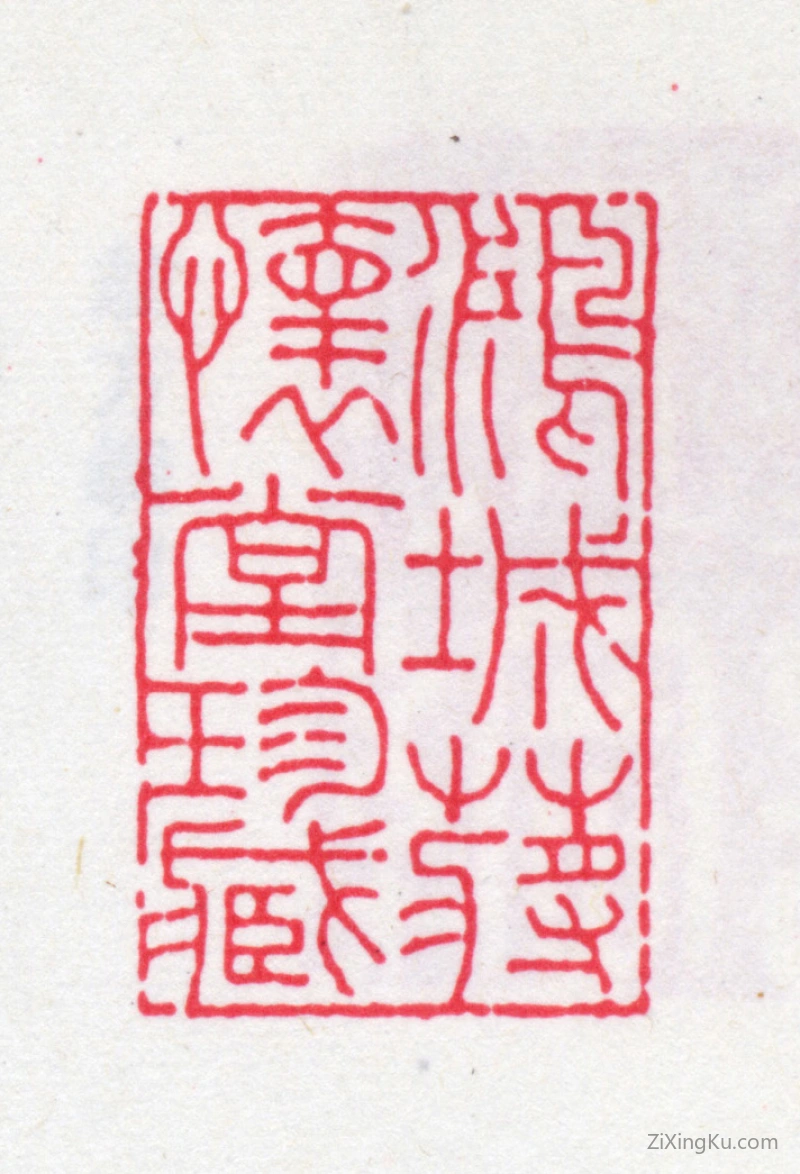 城
懷堂珍藏
ZiXingKu.com